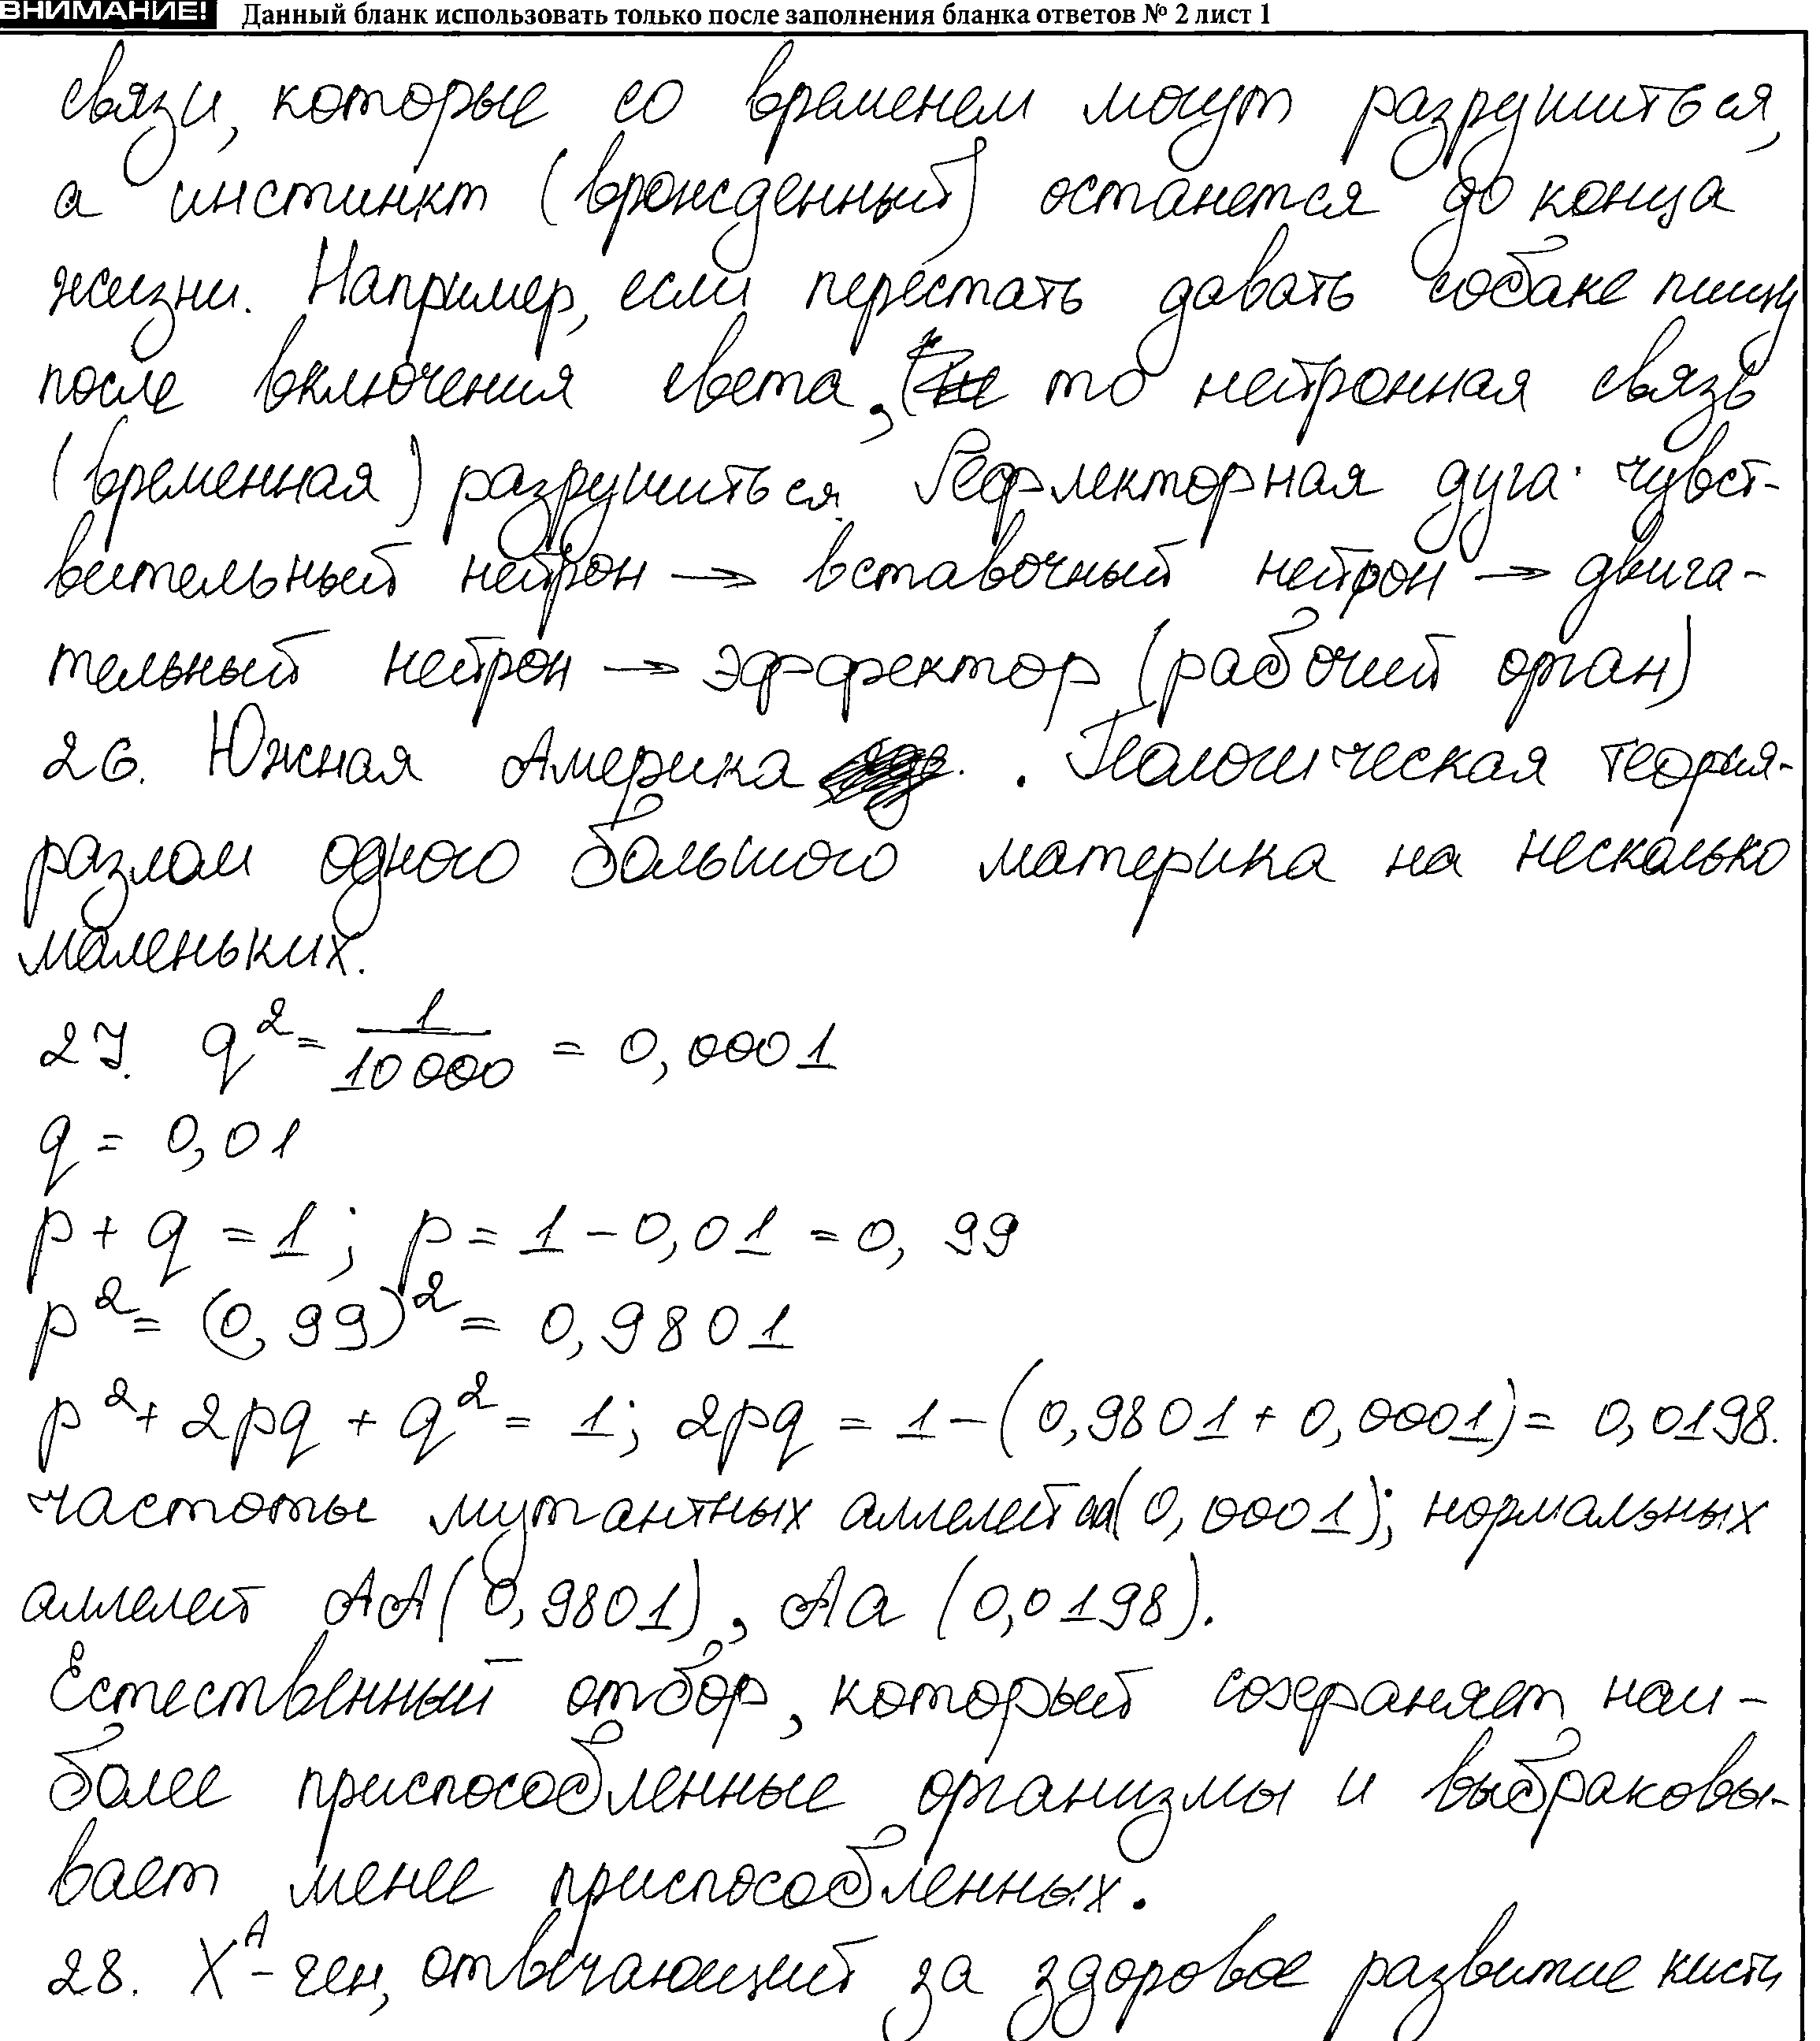 ВНИМАНИЕ! Данный бланк использовать только после заполнения бланка ответов № 2 лист 1
связи, которые со временем могут разрушиться,
а инстинкт (врожденный) останется до конца
жизни. Например, если перестать давать собаке пищу
после включения света, то нейронная связь
(временная) разрушиться. Рефлекторная дуга: чувст-
вительный нейрон → вставочный нейрон → двига-
тельный нейрон → эффектор (рабочий орган)
26. Южная Америка . Геологическая теория-
разлом одного большого материка на несколько
маленьких.
27. q² = 1/10000 = 0,0001
q = 0,01
p + q = 1; p = 1 - 0,01 = 0,99
p² = (0,99)² = 0,9801
p² + 2pq + q² = 1; 2pq = 1 - (0,9801 + 0,0001) = 0,0198.
частоты мутантных аллелей aa (0,0001); нормальных
аллелей AA (0,9801), Aa (0,0198).
Естественный отбор, который сохраняет наи-
более приспособленные организмы и выбраковы-
вает менее приспособленных.
28. Xᴬ - ген, отвечающий за здоровое развитие кисти